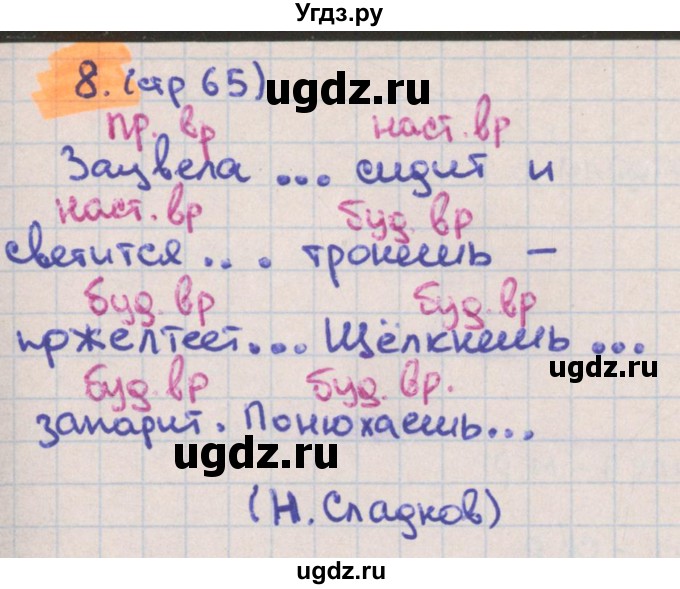 Угдз.ру
8. (стр 65)
ugdz.ru
пр. вр наст. вр
Зацвела ... сидит и
наст. вр буд. вр
светится ... тронешь -
буд. вр буд. вр
пржелтеет... Щёлкнешь ...
ugdz.ru
буд. вр буд. вр.
запарит. Понюхаешь...
ugdz.ru
(Н. Сладков)
ugdz.ru